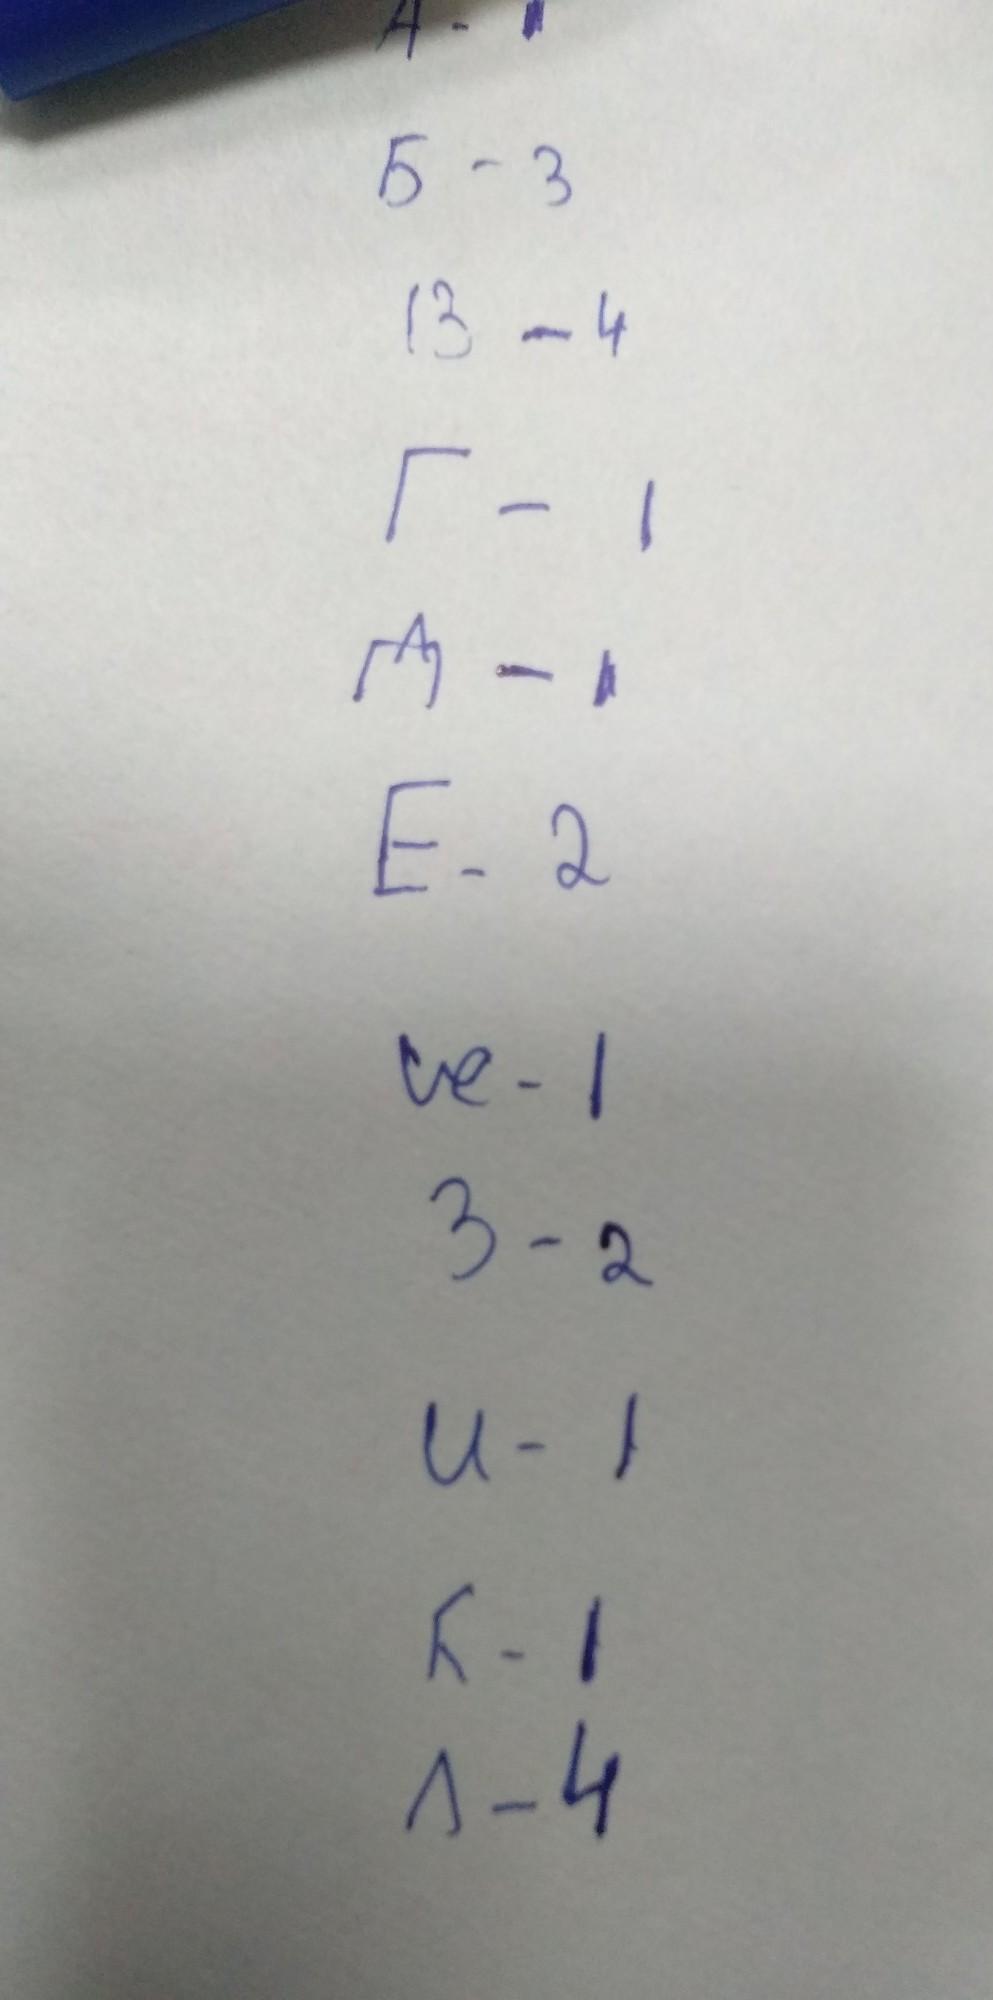 А - 1
Б - 3
В - 4
Г - 1
Д - 1
Е - 2
Ж - 1
З - 2
И - 1
К - 1
Л - 4